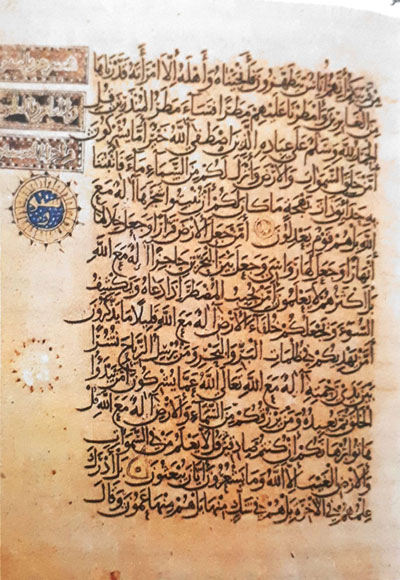 مِن قَرْيَتِكُمْ إِنَّهُمْ أُنَاسٌ يَتَطَهَّرُونَ فَأَنجَيْنَاهُ وَأَهْلَهُ إِلَّا امْرَأَتَهُ قَدَّرْنَاهَا
مِنَ الْغَابِرِينَ وَأَمْطَرْنَا عَلَيْهِم مَّطَرًا فَسَاءَ مَطَرُ الْمُنذَرِينَ قُلِ
الْحَمْدُ لِلَّهِ وَسَلَامٌ عَلَى عِبَادِهِ الَّذِينَ اصْطَفَى آللَّهُ خَيْرٌ أَمَّا يُشْرِكُونَ
أَمَّنْ خَلَقَ السَّمَوَاتِ وَالْأَرْضَ وَأَنزَلَ لَكُم مِّنَ السَّمَاءِ مَاءً فَأَنبَتْنَا
بِهِ حَدَائِقَ ذَاتَ بَهْجَةٍ مَّا كَانَ لَكُمْ أَن تُنبِتُوا شَجَرَهَا أَإِلَهٌ مَّعَ
اللَّهِ بَلْ هُمْ قَوْمٌ يَعْدِلُونَ أَمَّن جَعَلَ الْأَرْضَ قَرَارًا وَجَعَلَ خِلَالَهَا
أَنْهَارًا وَجَعَلَ لَهَا رَوَاسِيَ وَجَعَلَ بَيْنَ الْبَحْرَيْنِ حَاجِزًا أَإِلَهٌ مَّعَ اللَّهِ
بَلْ أَكْثَرُهُمْ لَا يَعْلَمُونَ أَمَّن يُجِيبُ الْمُضْطَرَّ إِذَا دَعَاهُ وَيَكْشِفُ
السُّوءَ وَيَجْعَلُكُمْ خُلَفَاءَ الْأَرْضِ أَإِلَهٌ مَّعَ اللَّهِ قَلِيلًا مَّا تَذَكَّرُونَ
أَمَّن يَهْدِيكُمْ فِي ظُلُمَاتِ الْبَرِّ وَالْبَحْرِ وَمَن يُرْسِلُ الرِّيَاحَ بُشْرًا
بَيْنَ يَدَيْ رَحْمَتِهِ أَإِلَهٌ مَّعَ اللَّهِ تَعَالَى اللَّهُ عَمَّا يُشْرِكُونَ أَمَّن يَبْدَؤُا
الْخَلْقَ ثُمَّ يُعِيدُهُ وَمَن يَرْزُقُكُم مِّنَ السَّمَاءِ وَالْأَرْضِ أَإِلَهٌ مَّعَ اللَّهِ قُلْ
هَاتُوا بُرْهَانَكُمْ إِن كُنتُمْ صَادِقِينَ قُل لَّا يَعْلَمُ مَن فِي السَّمَوَاتِ
وَالْأَرْضِ الْغَيْبَ إِلَّا اللَّهُ وَمَا يَشْعُرُونَ أَيَّانَ يُبْعَثُونَ بَلِ ادَّارَكَ
عِلْمُهُمْ فِي الْآخِرَةِ بَلْ هُمْ فِي شَكٍّ مِّنْهَا بَلْ هُم مِّنْهَا عَمُونَ وَقَالَ